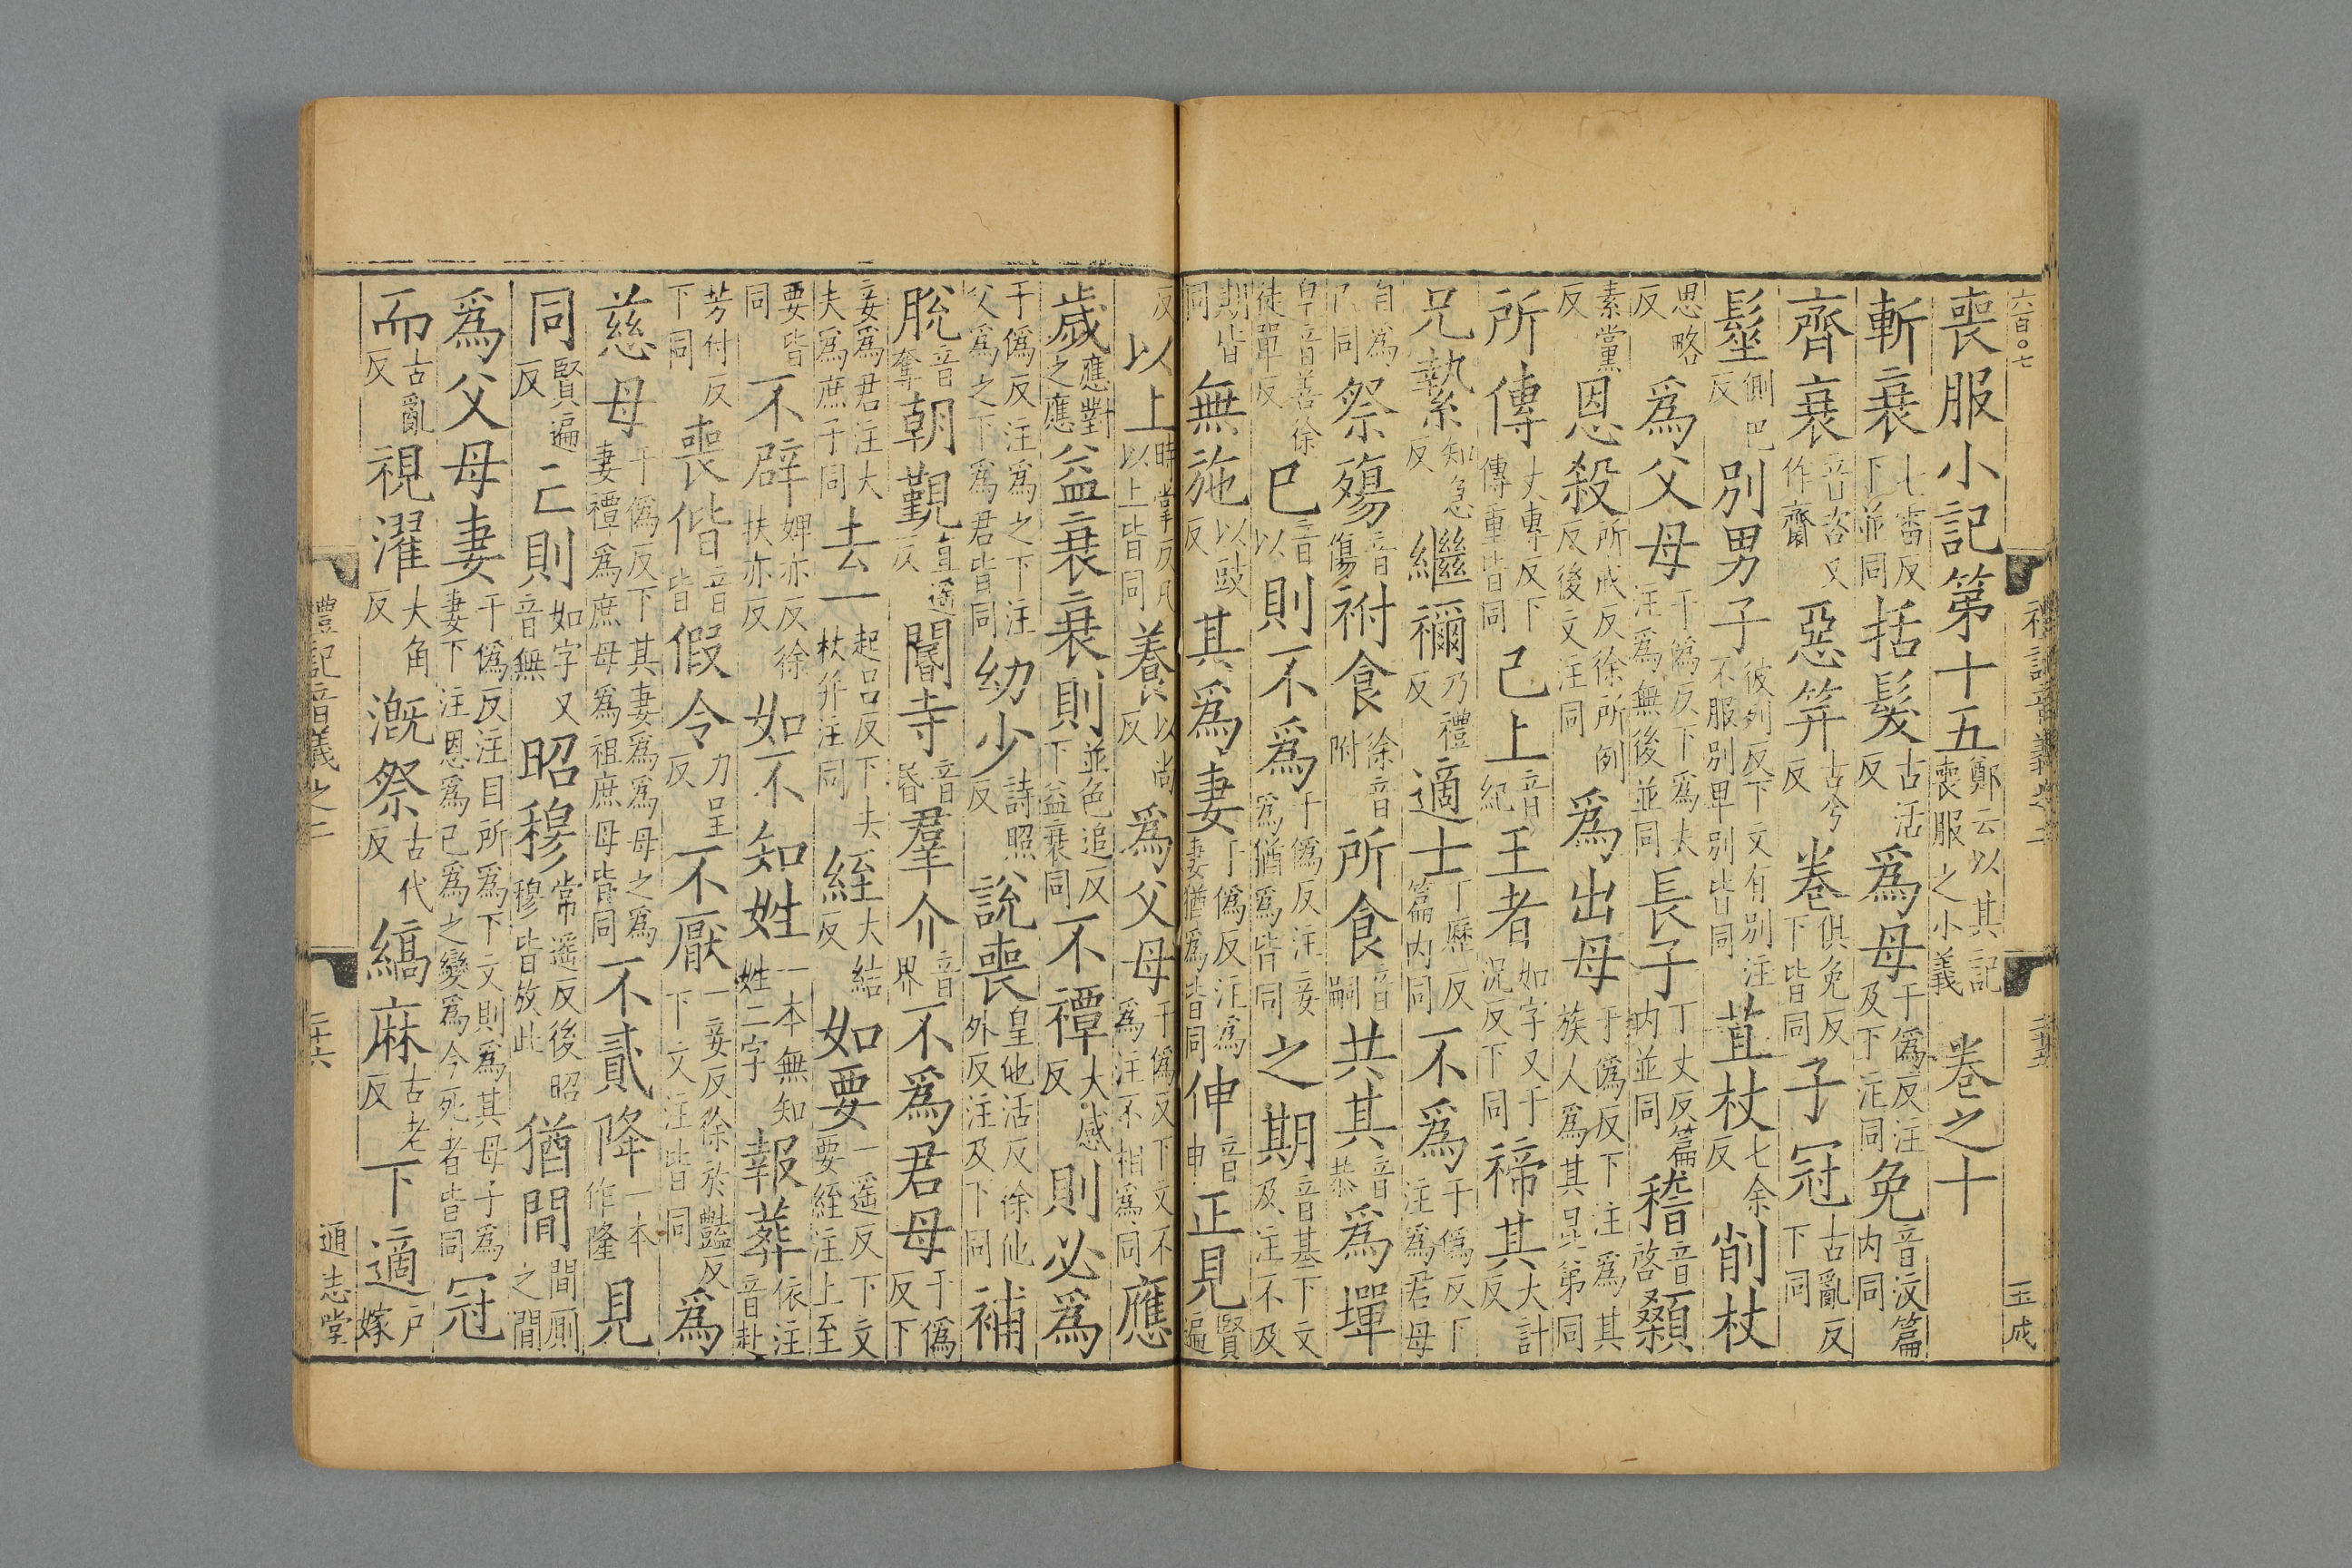 六百〇七 禮記音義之二 二十五 玉成
喪服小記第十五鄭云以其記喪服之小義 卷之十
斬衰七雷反下並同括髮古活反爲母于僞反注及下注同免音汶篇内同
齊衰音咨又作齎惡笄古兮反卷俱免反下皆同子冠古亂反下同
髽側巴反別男子彼列反下文有別注不服別卑別皆同苴杖七余反削杖
思略反爲父母于僞反下爲夫注爲無後並同長子丁丈反篇内並同稽音啓顙
素黨反恩殺所戒反徐所例反後文注同爲出母于僞反下注爲其族人爲其昆弟同
所傳丈專反下傳重皆同己上音紀王者如字又于況反下同禘其大計反
兄縶知急反繼禰乃禮反適士丁歷反篇内同不爲于僞反下注爲君母
自爲下同祭殤音傷祔食徐音附所食音嗣共其音恭爲墠
皇音善徐徒單反已音以則不爲于僞反注妾爲猶爲皆同之期音基下文及注不及
期皆同無施以豉反其爲妻于僞反注爲妻猶爲皆同伸音申正見賢遍
反以上時掌反凡以上皆同養以尚反爲父母于僞反下文不爲注不相爲同應
歲應對之應益衰衰則並色追反下益衰同不禫大感反則必爲
于僞反注爲之下注父爲之下爲君皆同幼少詩照反說喪皇他活反徐他外反注及下同補
脫音奪朝覲直遥反閽寺音昏羣介音界不爲君母于僞反下
妾爲君注大夫爲庶子同去一起呂反下去杖并注同絰大結反如要一遥反下文要絰注上至
要皆同不辟婢亦反徐扶亦反如不知姓一本無知姓二字報葬依注音赴
芳付反下同喪偕音皆假令力呈反不厭一妾反徐於豔反下文注皆同爲
慈母于僞反下其妻爲爲母之爲妻禫爲庶母爲祖庶母皆同不貳降一本作隆見
同賢遍反亡則如字又音無昭穆常遥反後昭穆皆放此猶間間厠之間
爲父母妻于僞反注目所爲下文則爲其母子爲妻下注恩爲己爲之變爲今死者皆同冠
而古亂反視濯大角反漑祭古代反縞麻古老反下適戶嫁
禮記音義之二 二十六 通志堂